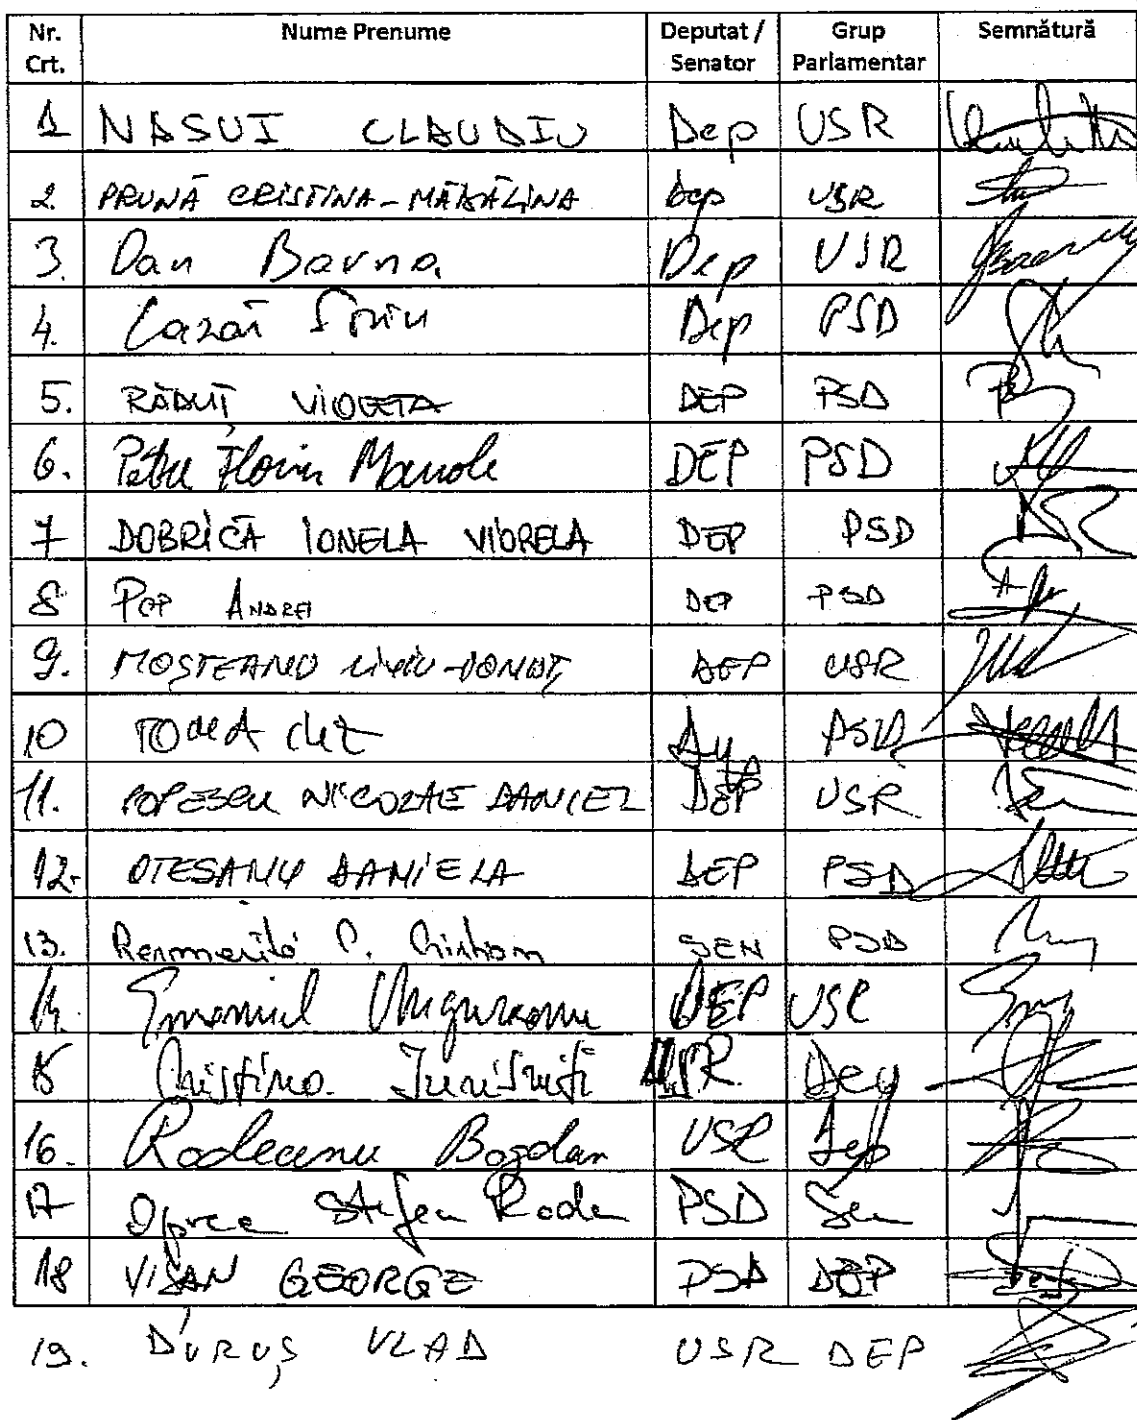 Nr. Crt. Nume Prenume Deputat / Senator Grup Parlamentar Semnătură
1 NASUI CLAUDIU Dep USR
2. PRUNĂ CRISTINA-MĂDĂLINA dep USR
3. Dan Barna Dep USR
4. Lazăr Sorin Dep PSD
5. RĂDUȚ VIOLETA DEP PSD
6. Petru Florin Manole DEP PSD
7 DOBRICĂ IONELA VIORELA DEP PSD
8 POP ANDREI DEP PSD
9. MOȘTEANU LIVIU-IONUȚ DEP USR
10 TOMA PSD
11. POPESCU NICOLAE DANIEL DEP USR
12. OTESANU DANIELA DEP PSD
13. C. SEN PSD
14. Emanuel Ungureanu DEP USR
15 Cristina USR. Dep
16. Rodeanu Bogdan USR Dep
17 Oprea Stefan Radu PSD Sen
18 VIȘAN GEORGE PSD DEP
19. DURUȘ VLAD USR DEP